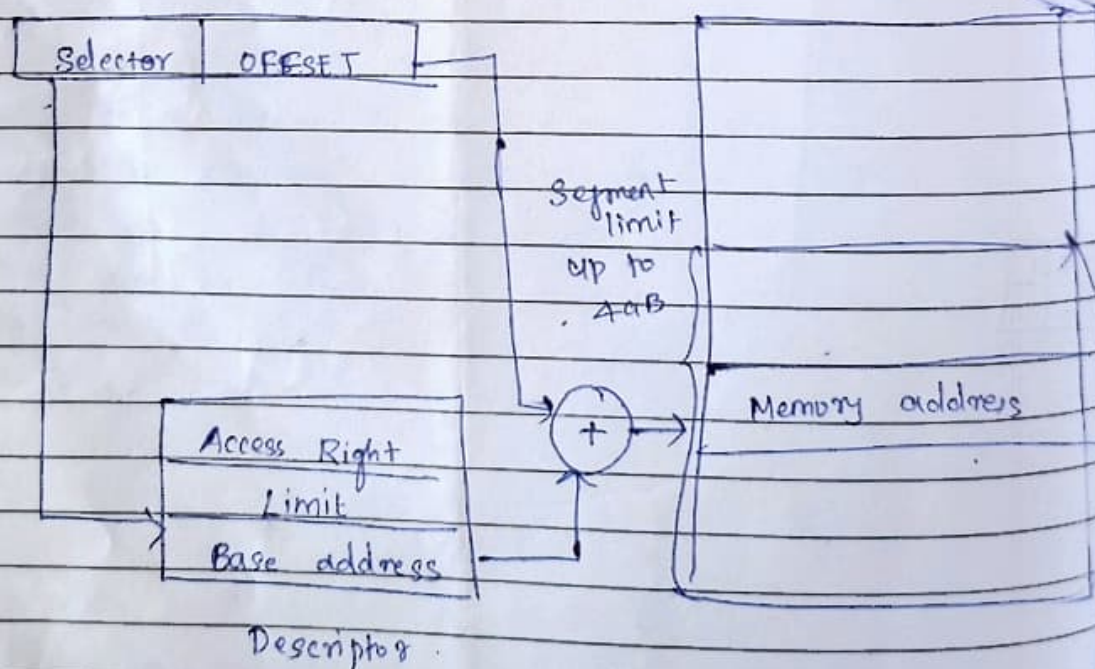 Selector OFFSET
Segment
limit
up to
4GB
Memory address
+
Access Right
Limit
Base address
Descriptor.